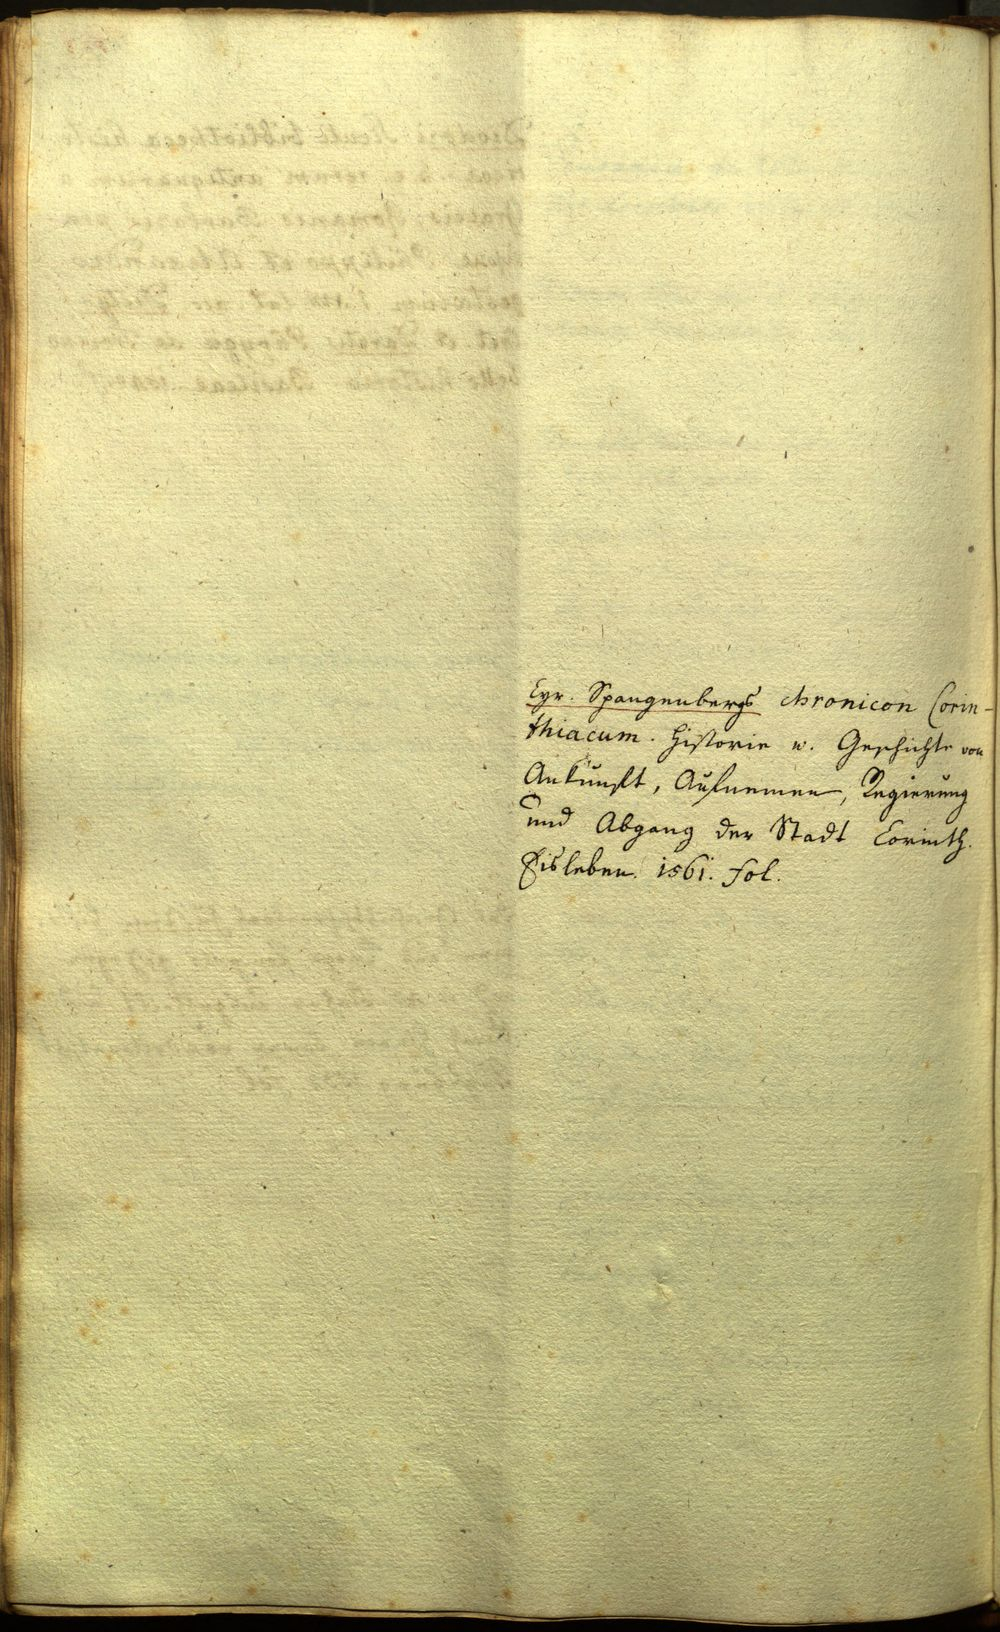 Cyr. Spangenbergs chronicon Corin-
thiacum. Historie u. Geschichte von
Ankunfft, Aufnemen, Regierung
und Abgang der Stadt Corinth.
Eisleben. 1561. fol.